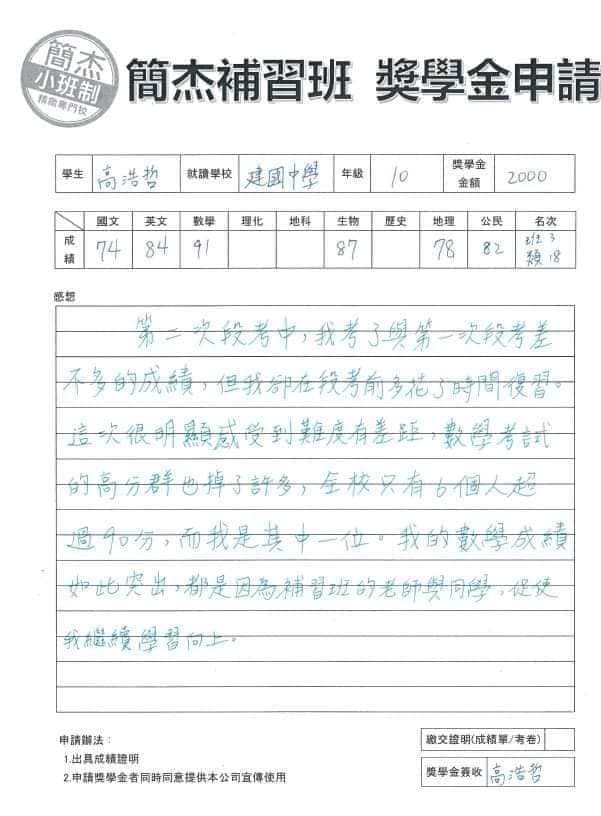 簡杰
小班制
精緻專門校
簡杰補習班 獎學金申請
學生 高浩哲 就讀學校 建國中學 年級 10 獎學金金額 2000
國文 英文 數學 理化 地科 生物 歷史 地理 公民 名次
成績 74 84 91 87 78 82 班3 類18
感想
第二次段考中，我考了與第一次段考差
不多的成績，但我卻在段考前多花了時間復習。
這次很明顯感受到難度有差距，數學考試
的高分群也掉了許多，全校只有6個人超
過90分，而我是其中一位。我的數學成績
如此突出，都是因為補習班的老師與同學，促使
我繼續學習向上。
申請辦法：
1.出具成績證明
2.申請獎學金者同時同意提供本公司宣傳使用
繳交證明(成績單/考卷)
獎學金簽收 高浩哲